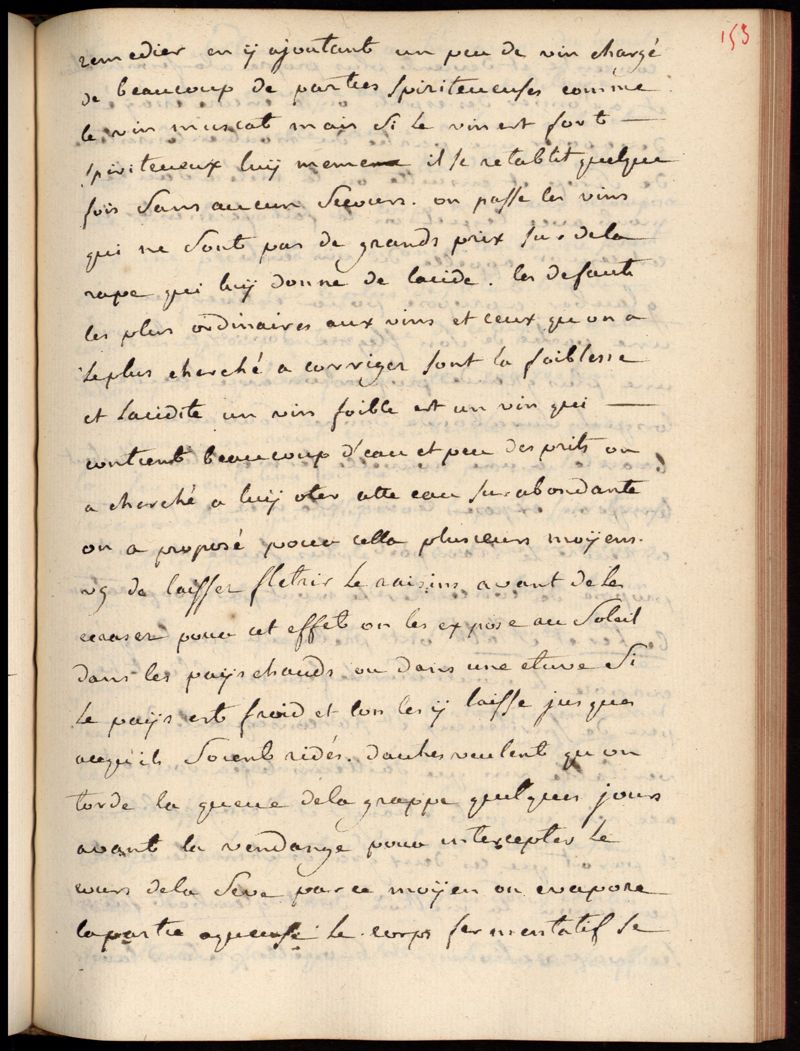 153
remedier en ÿ ajoutant un peu de vin chargé
de beaucoup de parties spiriteueuses comme
le vin muscat mais si le vin est fort —
spiriteueux luÿ meme il se retablit quelque
fois sans aucun secours. on passe les vins
qui ne sont pas de grands prix sur dela
rape qui luÿ donne de lacide. les defauts
les plus ordinaires aux vins et ceux quon a
le plus cherché a corriger sont la foiblesse
et lacidite un vin foible est un vin qui —
contient beaucoup d'eau et peu desprits on
a cherché a luÿ oter cette eau surabondante
on a proposé pour cella plusieurs moÿens.
vg de laisser fletrir le raisins avant de les
ecraser pour cet effet on les expose au soleil
dans les paÿs chauds ou dans une etuve si
le paÿs est froid et lon les ÿ laisse jusques
acequ'ils soient ridés. dautres veulent quon
torde la queue dela grappe quelques jours
avant la vendange pour intercepter le
cours dela seve par ce moÿen on evapore
la partie aqueuse le corps fermentatif se